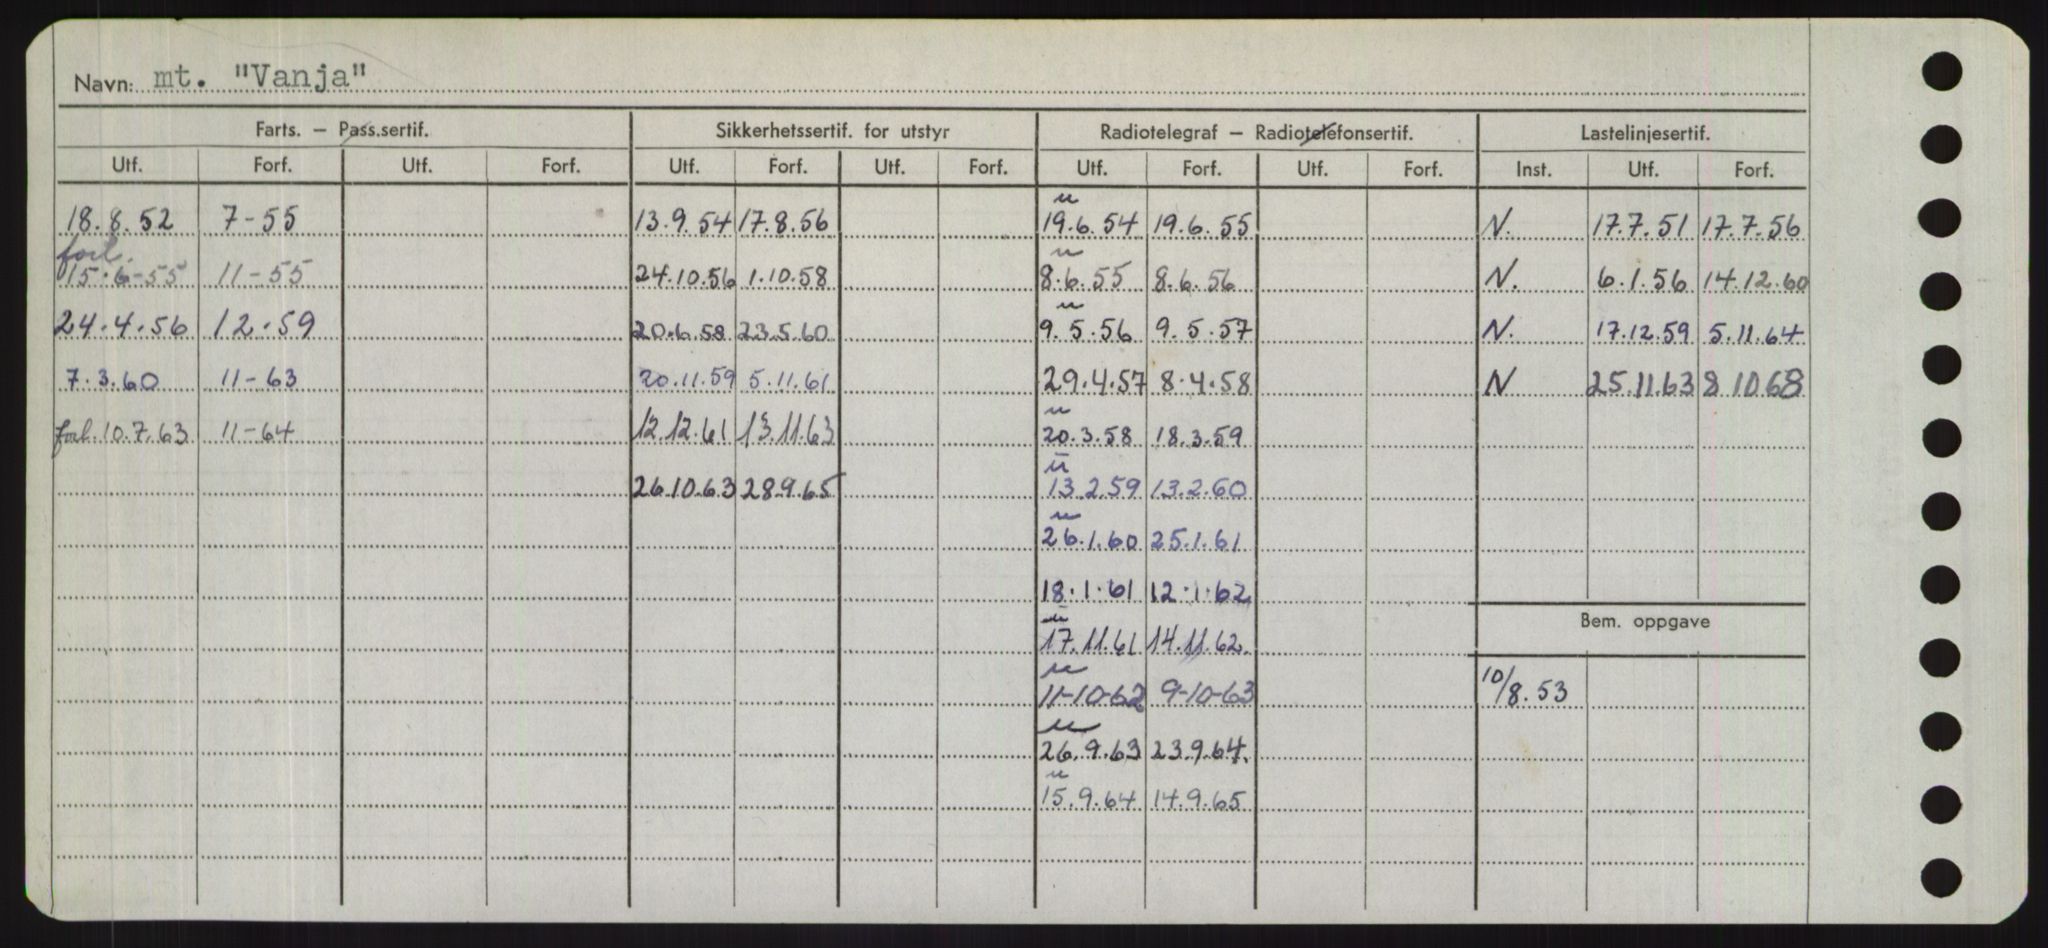 Navn: mt. "Vanja"
Farts. – Pass.sertif. Sikkerhetssertif. for utstyr Radiotelegraf – Radiotelefonsertif. Lastelinjesertif.
Utf. Forf. Utf. Forf. Utf. Forf. Utf. Forf. Utf. Forf. Utf. Forf. Inst. Utf. Forf.
u
18.8.52 7-55 13.9.54 17.8.56 19.6.54 19.6.55 N. 17.7.51 17.7.56
forl. u
15.6-55 11-55 24.10.56 1.10.58 8.6.55 8.6.56 N. 6.1.56 14.12.60
u
24.4.56 12.59 20.6.58 23.5.60 9.5.56 9.5.57 N. 17.12.59 5.11.64
7.3.60 11-63 20.11.59 5.11.61 29.4.57 8.4.58 N 25.11.63 8 10.68
u
forl. 10.7.63 11-64 12.12.61 13.11.63 20.3.58 18.3.59
u
26.10.63 28.9.65 13.2.59 13.2.60
u
26.1.60 25.1.61
18.1.61 12.1.62
Bem. oppgave
u
17.11.61 14.11.62.
u
11-10-62 9-10-63 10/8.53
u
26.9.63 23.9.64.
u
15.9.64 14.9.65